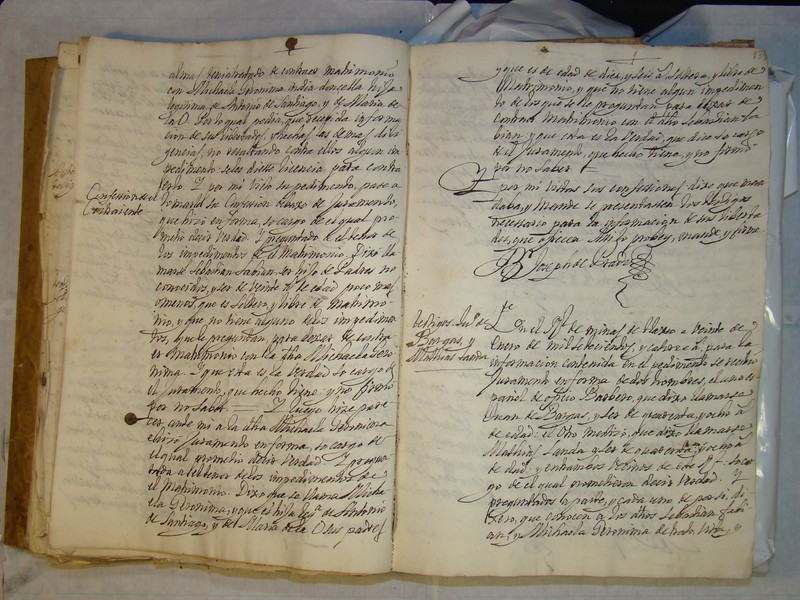 almas tenia tratado de contraer matrimonio
con Michaela Geronima india doncella hija
legitima de Antonio de Santiago, y de Maria de
la O. Por lo qual pedia, que recevida informa
cion de sus libertades, y hechas las demas dili
gencias, no resultando contra ellos algun im
pedimento: se les diesse licencia para contra
erlo. Y por mi visto su pedimento, passe a
tomarle su Confesion devaxo de Juramento,
que hizo en forma, so cargo de el qual pro
metio decir verdad. Y preguntado de el thenor de
los impedimentos de el Matrimonio. Dixo lla
marse Sebastian Fabian: ser hijo de Padres no
conocidos, y ser de veinte as de edad poco mas
o menos, que es soltero, y libre de matrimo
nio, y que no tiene alguno de los impedimen
tos, que le preguntan, para dexar de contra
er Matrimonio con la dha Michaela Gero
nima. Y que esta es la verdad so cargo de
el Juramento, que hecho tiene: y no firmó
por no saber. Y luego hize pare
cer, ante mi a la dha Michaela Geronima
e hizo Juramento en forma, so cargo de
el qual prometio decir verdad. Y pregun
tada a el tenor de los impedimentos de
el Matrimonio. Dixo que se llama Micha
ela Geronima, y que es hija legma de Antonio
de Santiago, y de Maria de la O sus padres
Confession de el
Contraiente
y que es de edad de diez, y seis as soltera, y libre de
Matrimonio, y que no tiene algun impedimen
to de los que se le preguntan para dexar de
contraer Matrimonio con el dho Sebastian Fa
bian y que esta es la verdad, que dixo so cargo
de el Juramento, que hecho tiene, y no firmó
por no saber
Y por mi vistas las confessiones dixe que man
daba, y mande se presentassen los testigos
necesarios para la informacion de sus liberta
des, que ofrecen. Assi lo provey, mande, y firme
Br Joseph de
testigos Jun de
Borgas, y
Mathias Landa
En el Rl de minas de
Enero de mil setecientos, y catorce as, para la
informacion contenida en el pedimento se recivio
Juramento en forma de dos hombres, el uno es
pañol de oficio Barbero, que dixo llamarse
Juan de Borgas, y ser de quarenta, y ocho as
de edad: el otro mestizo, que dixo llamarse
Mathias Landa y ser de quarenta, y ocho as
de edad, y entrambos vecinos de este Rl so car
go de el qual prometieron decir verdad. Y
preguntados la parte, y cada uno de por si, di
xeron, que conocen a los dhos Sebastian Fabi
an, y Michaela Geronima de trato, vista, y